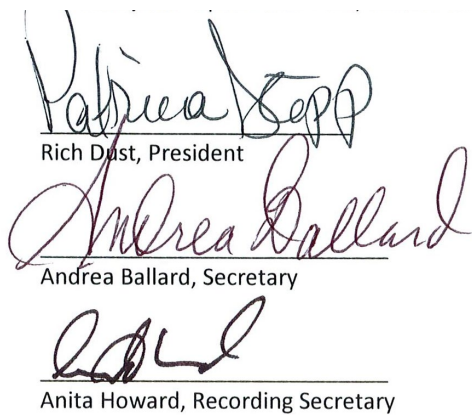 Patricia Stepp
Rich Dust, President
Andrea Ballard
Andrea Ballard, Secretary
Anita Howard, Recording Secretary